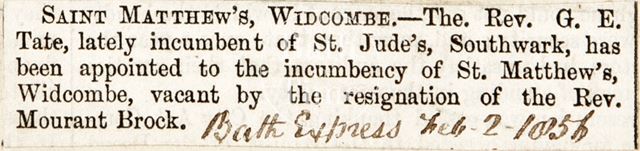 SAINT MATTHEW'S, WIDCOMBE.—The. Rev. G. E.
Tate, lately incumbent of St. Jude's, Southwark, has
been appointed to the incumbency of St. Matthew's,
Widcombe, vacant by the resignation of the Rev.
Mourant Brock. Bath Express Feb-2-1856